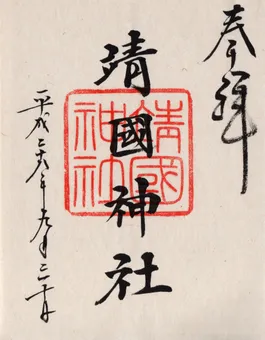 奉拝
靖國神社
靖國神社
平成二六年九月二十日